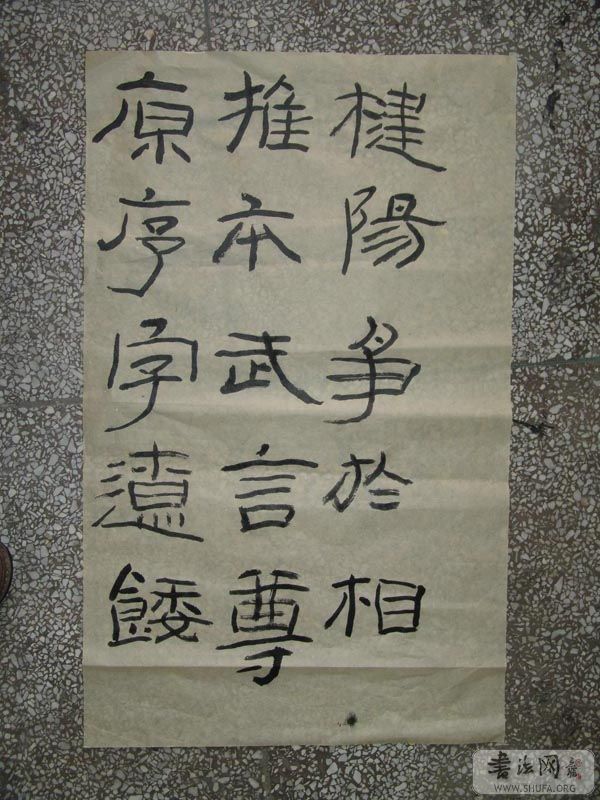 楗陽爭於相
推本武言尊
原序字遺餧
书法网
WWW.SHUFA.ORG